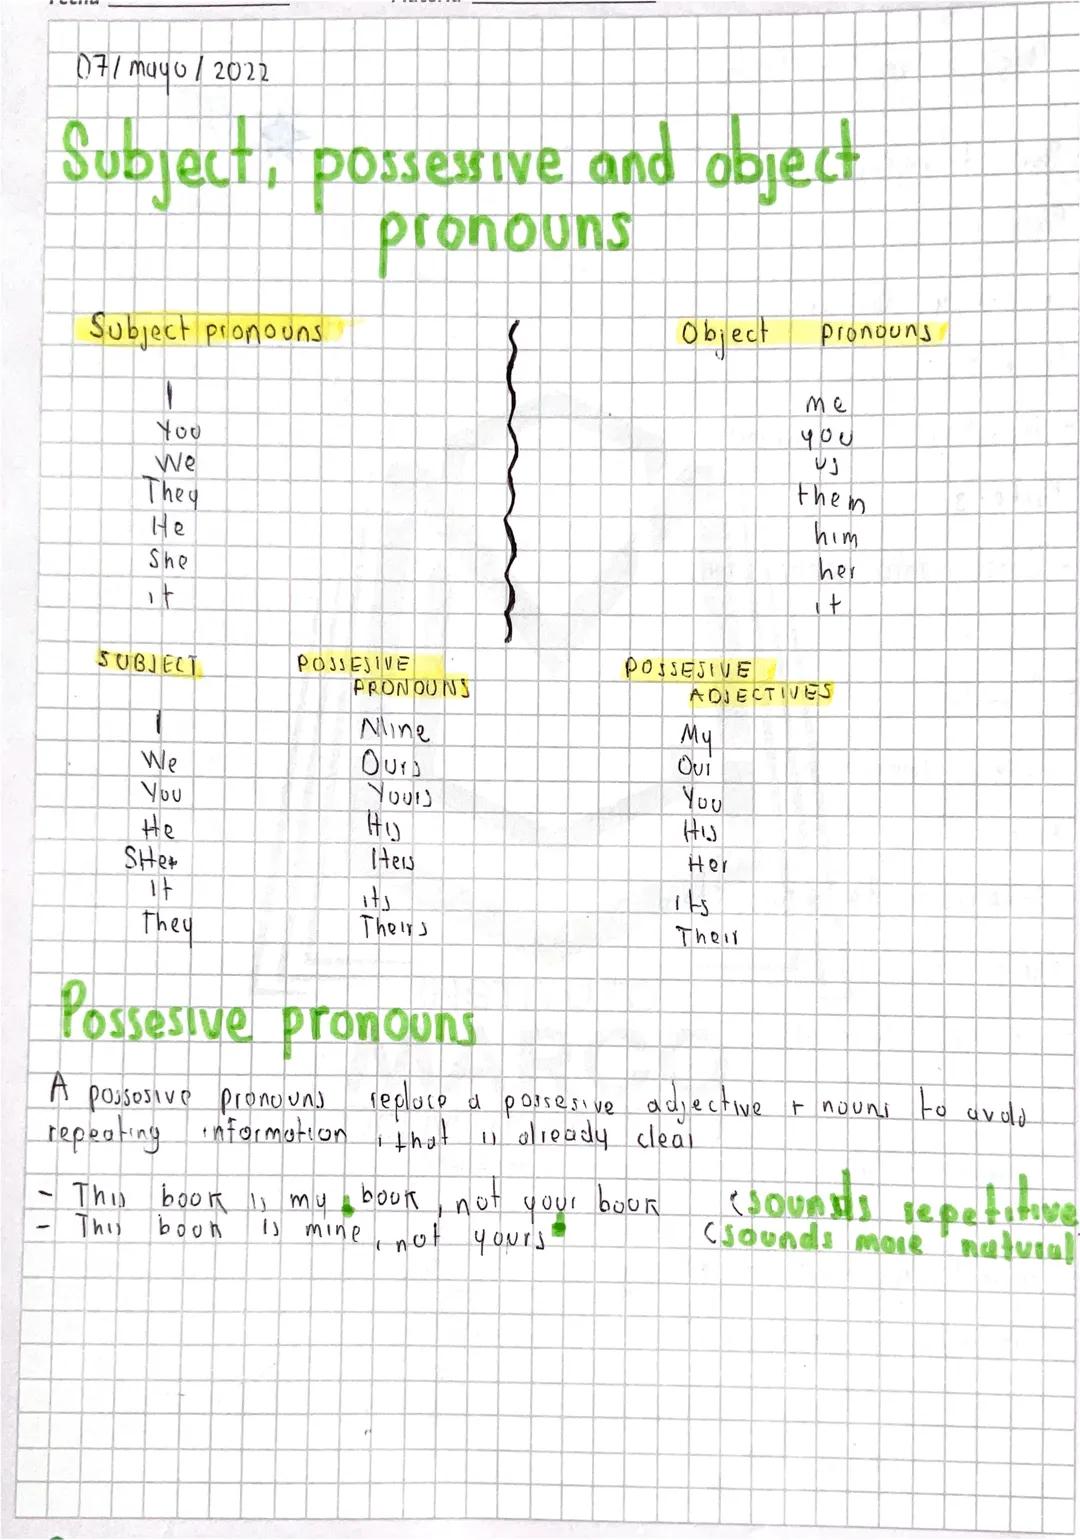 07/mayo/2022
Subject, possessive and object
pronouns
Subject pronouns
I
You
We
They
He
She
it
Object pronouns
me
you
us
them
him
her
it
SUBJECT
I
We
You
He
SHe
It
They
POSSESIVE
PRONOUNS
Mine
Ours
Yours
His
Hers
its
Theirs
POSSESIVE
ADJECTIVES
My
Our
You
His
Her
Its
Their
Possesive pronouns
A possosive pronouns replace a possesive adjective + nouns to avoid
repeating information, that is already clear
- This book is my book, not your book (sounds repetitive
- This book is mine, not yours (sounds more natural